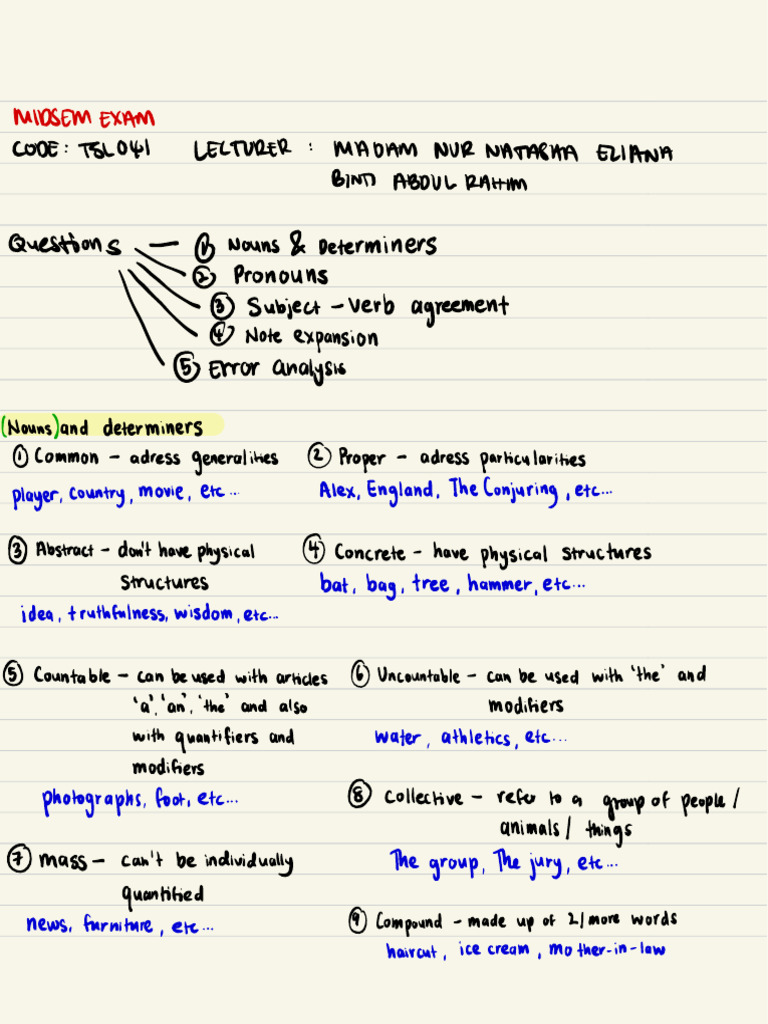 MIDSEM EXAM
CODE: TSL041 LECTURER : MADAM NUR NATASHA ELIANA
BINTI ABDUL RAHIM
Questions — ① Nouns & Determiners
② Pronouns
③ Subject - verb agreement
④ Note expansion
⑤ Error analysis
(Nouns) and determiners
① Common - adress generalities
player, country, movie, etc...
② Proper - adress particularities
Alex, England, The Conjuring, etc...
③ Abstract - don't have physical
structures
idea, truthfulness, wisdom, etc...
④ Concrete - have physical structures
bat, bag, tree, hammer, etc...
⑤ Countable - can be used with articles
'a', 'an', 'the' and also
with quantifiers and
modifiers
photographs, foot, etc...
⑥ Uncountable - can be used with 'the' and
modifiers
water, athletics, etc...
⑦ Mass - can't be individually
quantified
news, furniture, etc...
⑧ Collective - refer to a group of people/
animals/ things
The group, The jury, etc...
⑨ Compound - made up of 2/more words
haircut, ice cream, mother-in-law